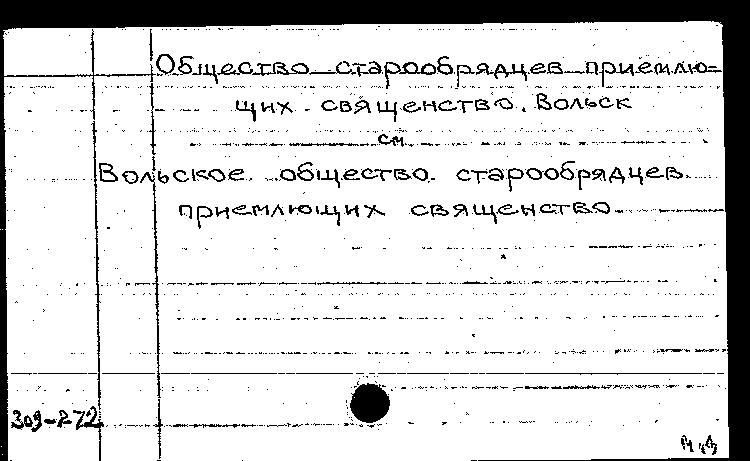 Общество старообрядцев приемлю=
щих священство. Вольск
см
Вольское общество старообрядцев
приемлющих священство
309-272